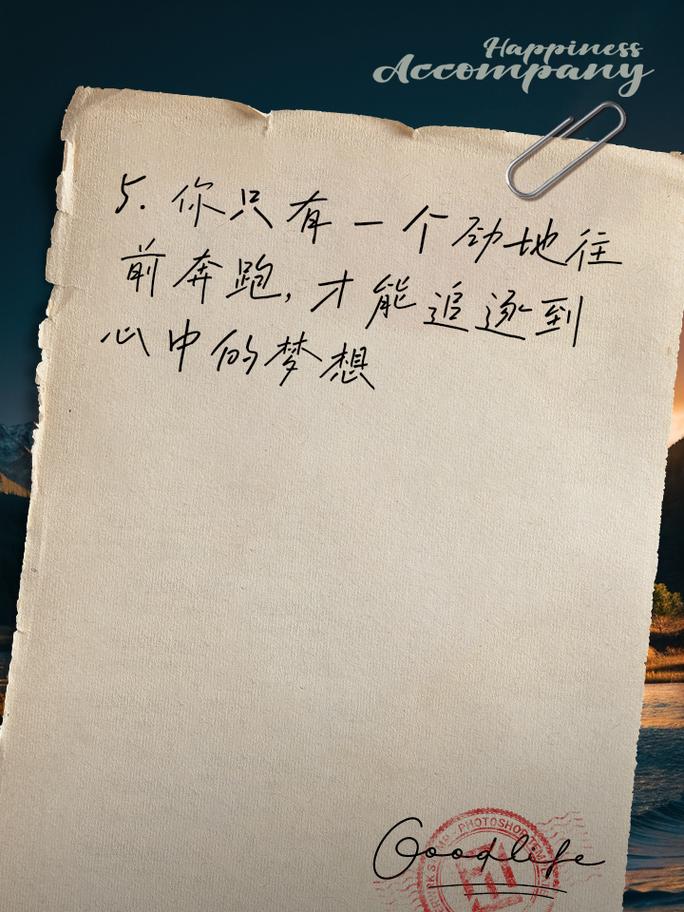 Happiness
Accompany
5. 你只有一个劲地往
前奔跑, 才能追逐到
心中的梦想
Goodlife
PHOTOSHOP